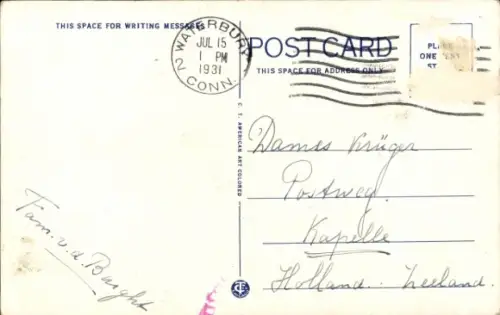 THIS SPACE FOR WRITING MESSAGES
WATERBURY
2
JUL 15
1 PM
1931
CONN.
POST CARD
THIS SPACE FOR ADDRESS ONLY
ONE
C. T. AMERICAN ART COLORED
Dames Krüger
Postweg.
Kapelle
Holland. Zeeland.
Fam. v. d. Bught